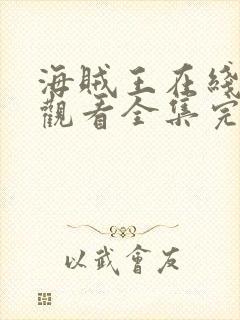 海贼王在线
觀看全集完
以武會友